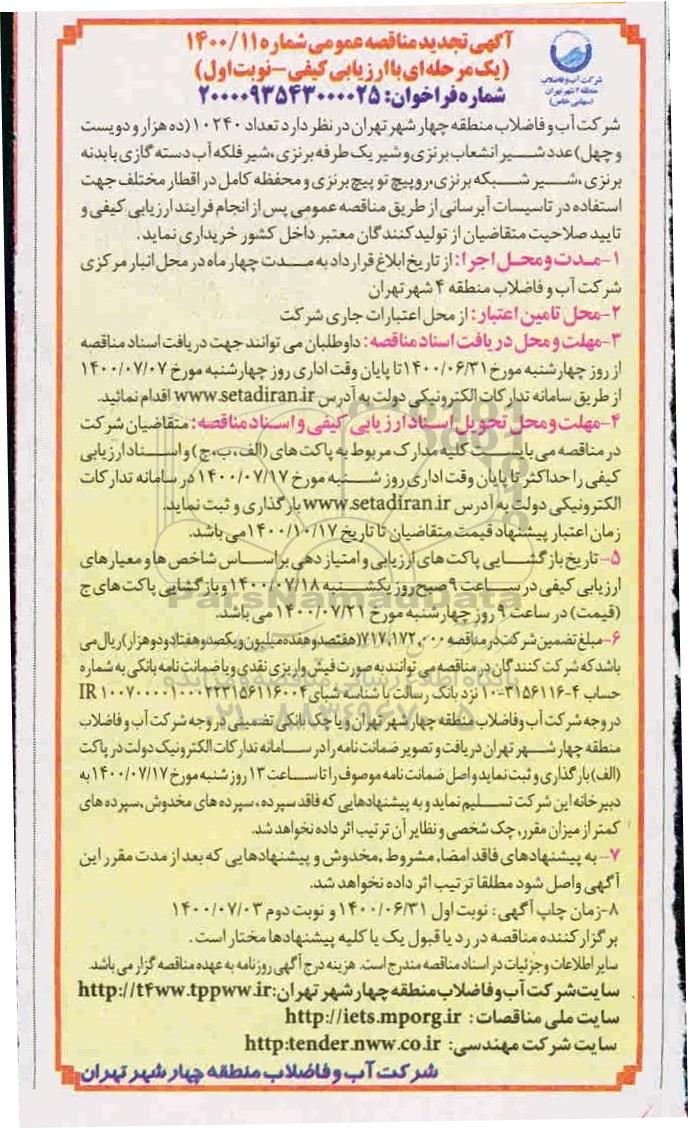 آگهی تجدید مناقصه عمومی شماره ۱۴۰۰/۱۱
(یک مرحله ای با ارزیابی کیفی - نوبت اول)
شماره فراخوان: ۲۰۰۰۰۹۳۵۴۳۰۰۰۰۲۵
شرکت آب و فاضلاب
منطقه ۴ شهر تهران
(سهامی خاص)
شرکت آب و فاضلاب منطقه چهار شهر تهران در نظر دارد تعداد ۱۰۲۴۰ (ده هزار و دویست
و چهل) عدد شیر انشعاب برنزی و شیر یک طرفه برنزی، شیر فلکه آب دسته گازی با بدنه
برنزی، شیر شبکه برنزی، روپیچ توپیچ برنزی و محفظه کامل در اقطار مختلف جهت
استفاده در تاسیسات آبرسانی از طریق مناقصه عمومی پس از انجام فرایند ارزیابی کیفی و
تایید صلاحیت متقاضیان از تولید کنندگان معتبر داخل کشور خریداری نماید.
۱- مدت و محل اجرا: از تاریخ ابلاغ قرارداد به مدت چهار ماه در محل انبار مرکزی
شرکت آب و فاضلاب منطقه ۴ شهر تهران
۲- محل تامین اعتبار: از محل اعتبارات جاری شرکت
۳- مهلت و محل دریافت اسناد مناقصه: داوطلبان می توانند جهت دریافت اسناد مناقصه
از روز چهارشنبه مورخ ۱۴۰۰/۰۶/۳۱ تا پایان وقت اداری روز چهارشنبه مورخ ۱۴۰۰/۰۷/۰۷
از طریق سامانه تدارکات الکترونیکی دولت به آدرس www.setadiran.ir اقدام نمائید.
۴- مهلت و محل تحویل اسناد ارزیابی کیفی و اسناد مناقصه: متقاضیان شرکت
در مناقصه می بایست کلیه مدارک مربوط به پاکت های (الف، ب، ج) و اسناد ارزیابی
کیفی را حداکثر تا پایان وقت اداری روز شنبه مورخ ۱۴۰۰/۰۷/۱۷ در سامانه تدارکات
الکترونیکی دولت به آدرس www.setadiran.ir بارگذاری و ثبت نماید.
زمان اعتبار پیشنهاد قیمت متقاضیان تا تاریخ ۱۴۰۰/۱۰/۱۷ می باشد.
۵- تاریخ بازگشایی پاکت های ارزیابی و امتیاز دهی بر اساس شاخص ها و معیارهای
ارزیابی کیفی در ساعت ۹ صبح روز یکشنبه ۱۴۰۰/۰۷/۱۸ و بازگشایی پاکت های ج
(قیمت) در ساعت ۹ روز چهارشنبه مورخ ۱۴۰۰/۰۷/۲۱ می باشد.
۶- مبلغ تضمین شرکت در مناقصه ۷۱۷,۱۷۲,۰۰۰ (هفتصد و هفده میلیون و یکصد و هفتاد و دو هزار) ریال می
باشد که شرکت کنندگان در مناقصه می توانند به صورت فیش واریزی نقدی و یا ضمانت نامه بانکی به شماره
حساب ۴-۳۱۵۶۱۱۶-۱۰ نزد بانک رسالت با شناسه شبای IR ۱۰۰۷۰۰۰۰۱۰۰۰۲۲۳۱۵۶۱۱۶۰۰۴
در وجه شرکت آب و فاضلاب منطقه چهار شهر تهران و یا چک بانکی تضمینی در وجه شرکت آب و فاضلاب
منطقه چهار شهر تهران دریافت و تصویر ضمانت نامه را در سامانه تدارکات الکترونیک دولت در پاکت
(الف) بارگذاری و ثبت نماید و اصل ضمانت نامه موصوف را تا ساعت ۱۳ روز شنبه مورخ ۱۴۰۰/۰۷/۱۷ به
دبیرخانه این شرکت تسلیم نماید و به پیشنهادهایی که فاقد سپرده، سپرده های مخدوش، سپرده های
کمتر از میزان مقرر، چک شخصی و نظایر آن ترتیب اثر داده نخواهد شد.
۷- به پیشنهادهای فاقد امضا, مشروط ,مخدوش و پیشنهادهایی که بعد از مدت مقرر این
آگهی واصل شود مطلقا ترتیب اثر داده نخواهد شد.
۸-زمان چاپ آگهی: نوبت اول ۱۴۰۰/۰۶/۳۱ و نوبت دوم ۱۴۰۰/۰۷/۰۳
برگزار کننده مناقصه در رد یا قبول یک یا کلیه پیشنهادها مختار است.
سایر اطلاعات و جزئیات در اسناد مناقصه مندرج است. هزینه درج آگهی روزنامه به عهده مناقصه گزار می باشد.
سایت شرکت آب و فاضلاب منطقه چهار شهر تهران: http://t۴ww.tppww.ir
سایت ملی مناقصات: http://iets.mporg.ir
سایت شرکت مهندسی: http:tender.nww.co.ir
شرکت آب و فاضلاب منطقه چهار شهر تهران